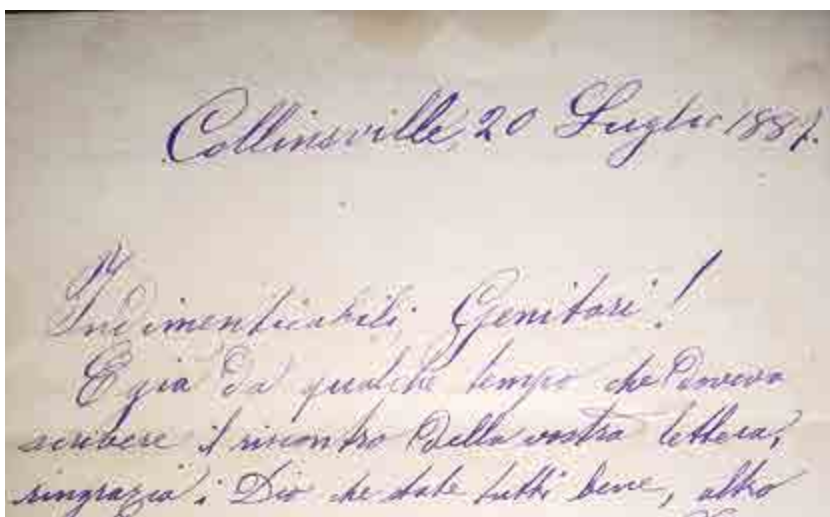 Collinsville, 20 Luglio 1887.
Indimenticabili Genitori!
E gia da qualche tempo che doveva
scrivere il riscontro della vostra lettera,
ringrazia; Dio che state tutti bene, altro